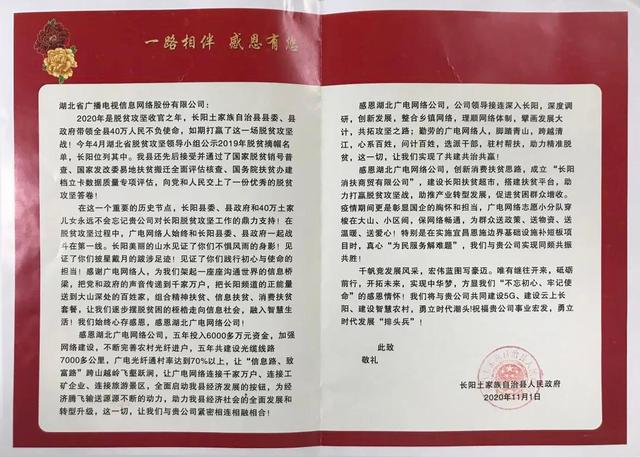 一路相伴 感恩有您
湖北省广播电视信息网络股份有限公司：
2020年是脱贫攻坚收官之年，长阳土家族自治县县委、县
政府带领全县40万人民不负使命，如期打赢了这一场脱贫攻坚
战！今年4月湖北省脱贫攻坚领导小组公示2019年脱贫摘帽名
单，长阳位列其中。我县还先后接受并通过了国家脱贫销号普
查、国家发改委易地扶贫搬迁全面评估核查、国务院扶贫办建
档立卡数据质量专项评估，向党和人民交上了一份优秀的脱贫
攻坚答卷！
在这一个重要的历史节点，长阳县委、县政府和40万土家
儿女永远不会忘记贵公司对长阳脱贫攻坚工作的鼎力支持！在
脱贫攻坚过程中，广电网络人始终和长阳县委、县政府一起战
斗在第一线。长阳美丽的山水见证了你们不惧风雨的身影！见
证了你们披星戴月的跋涉足迹！见证了你们践行初心与使命的
担当！感谢广电网络人，为我们架起一座座沟通世界的信息桥
梁，把党和政府的声音传递到千家万户，把长阳频道的正能量
送到大山深处的百姓家，组合精神扶贫、信息扶贫、消费扶贫
套餐，让我们逐步摆脱贫困的桎梏走向信息社会，融入潮智生
活！我们始终心存感恩，感恩湖北广电网络公司！
感恩湖北广电网络公司，五年投入6000多万元资金，加强
网络建设，不断完善农村光纤进户，五年共建设光缆线路
7000多公里，广电光纤通村率达到70%以上，让“信息路、致
富路”跨山越岭飞壑跃涧，让广电网络连接千家万户、连接工
矿企业、连接旅游景区，全面启动我县经济发展的按钮，为经
济腾飞输送源源不断的动力，助力我县经济社会的全面发展和
转型升级，这一切，让我们与贵公司紧密相连相融相合！
感恩湖北广电网络公司，公司领导接连深入长阳，深度调
研，创新发展，整合乡镇网络，理顺网络体制，擘画发展大
计，共拓攻坚之路；勤劳的广电网络人，脚踏青山，跨越清
江，心系百姓，问计百姓，选派干部，驻村帮扶，助力精准脱
贫，这一切，让我们实现了共建共治共赢！
感恩湖北广电网络公司，创新消费扶贫思路，成立“长阳
消扶商贸有限公司”，建设长阳扶贫超市，搭建扶贫平台，助
力打赢脱贫攻坚战，助推产业转型发展，促进贫困群众增收。
疫情期间更是彰显国企的胸怀和担当，广电网络志愿小分队穿
梭在大山、小区间，保网络畅通，为群众送政策、送物资、送
温暖、送爱心！特别是在实施宜昌恩施边界基础设施补短板项
目时，真心“为民服务解难题”，我们与贵公司实现同频共振
共生！
千帆竞发展风采，宏伟蓝图写豪迈。唯有继往开来，砥砺
前行，开拓未来，实现中华梦，方显我们“不忘初心、牢记使
命”的感恩情怀！我们将与贵公司共同建设5G、建设云上长
阳、建设智慧农村，勇立时代潮头!祝福贵公司事业宏发，勇立
时代发展“排头兵”！
此致
敬礼
长阳土家族自治县人民政府
2020年11月1日